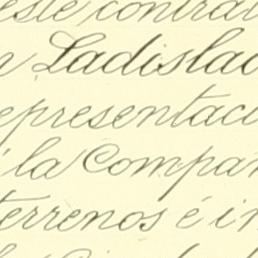 este contrat
n Ladislao
epresentaci
la Compañ
terrenos é in